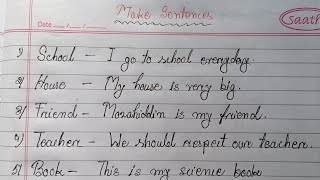 Make Sentences
Saath
Date __/__/__
১) School – I go to school everyday.
২) House – My house is very big.
৩) Friend – Morahiddin is my friend.
৪) Teacher – We should respect our teacher.
৫) Book – This is my science book